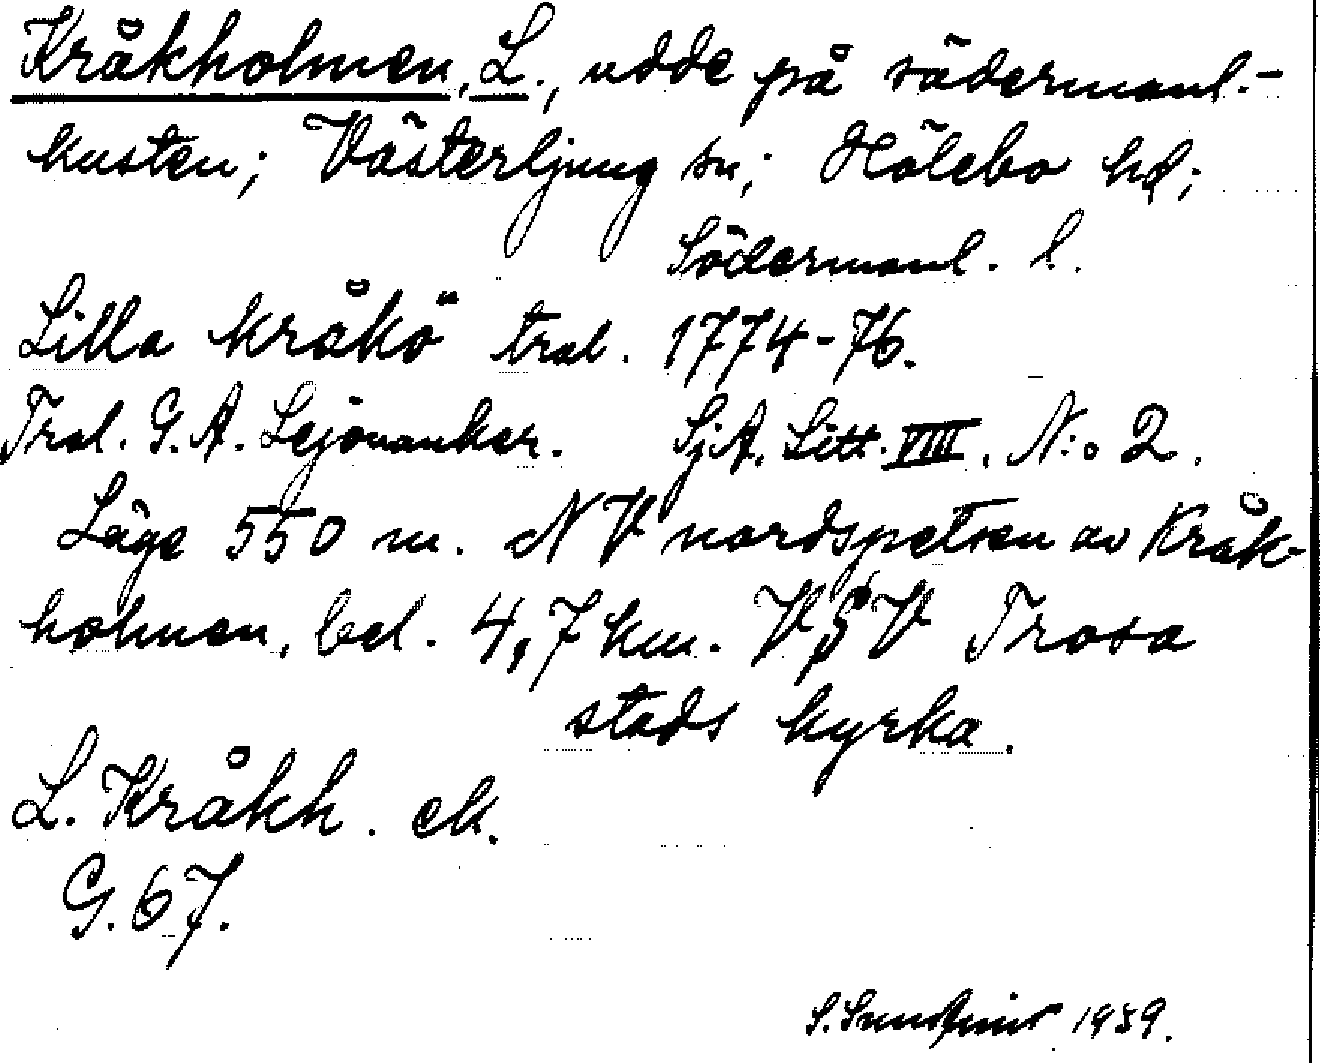 Kråkholmen, L., udde på södermanl.-
kusten; Västerljung sn; Hölebo hd;
Södermanl. l.
Lilla Kråkö tral. 1774-76.
Tral. G. A. Lejonanker. SjA. Litt. VIII. N:o 2.
Läge 550 m. NV nordspetsen av Kråk-
holmen, bel. 4,7 km. VSV Trosa
stads kyrka.
L. Kråkh. ek.
G. 67.
S. 1939.